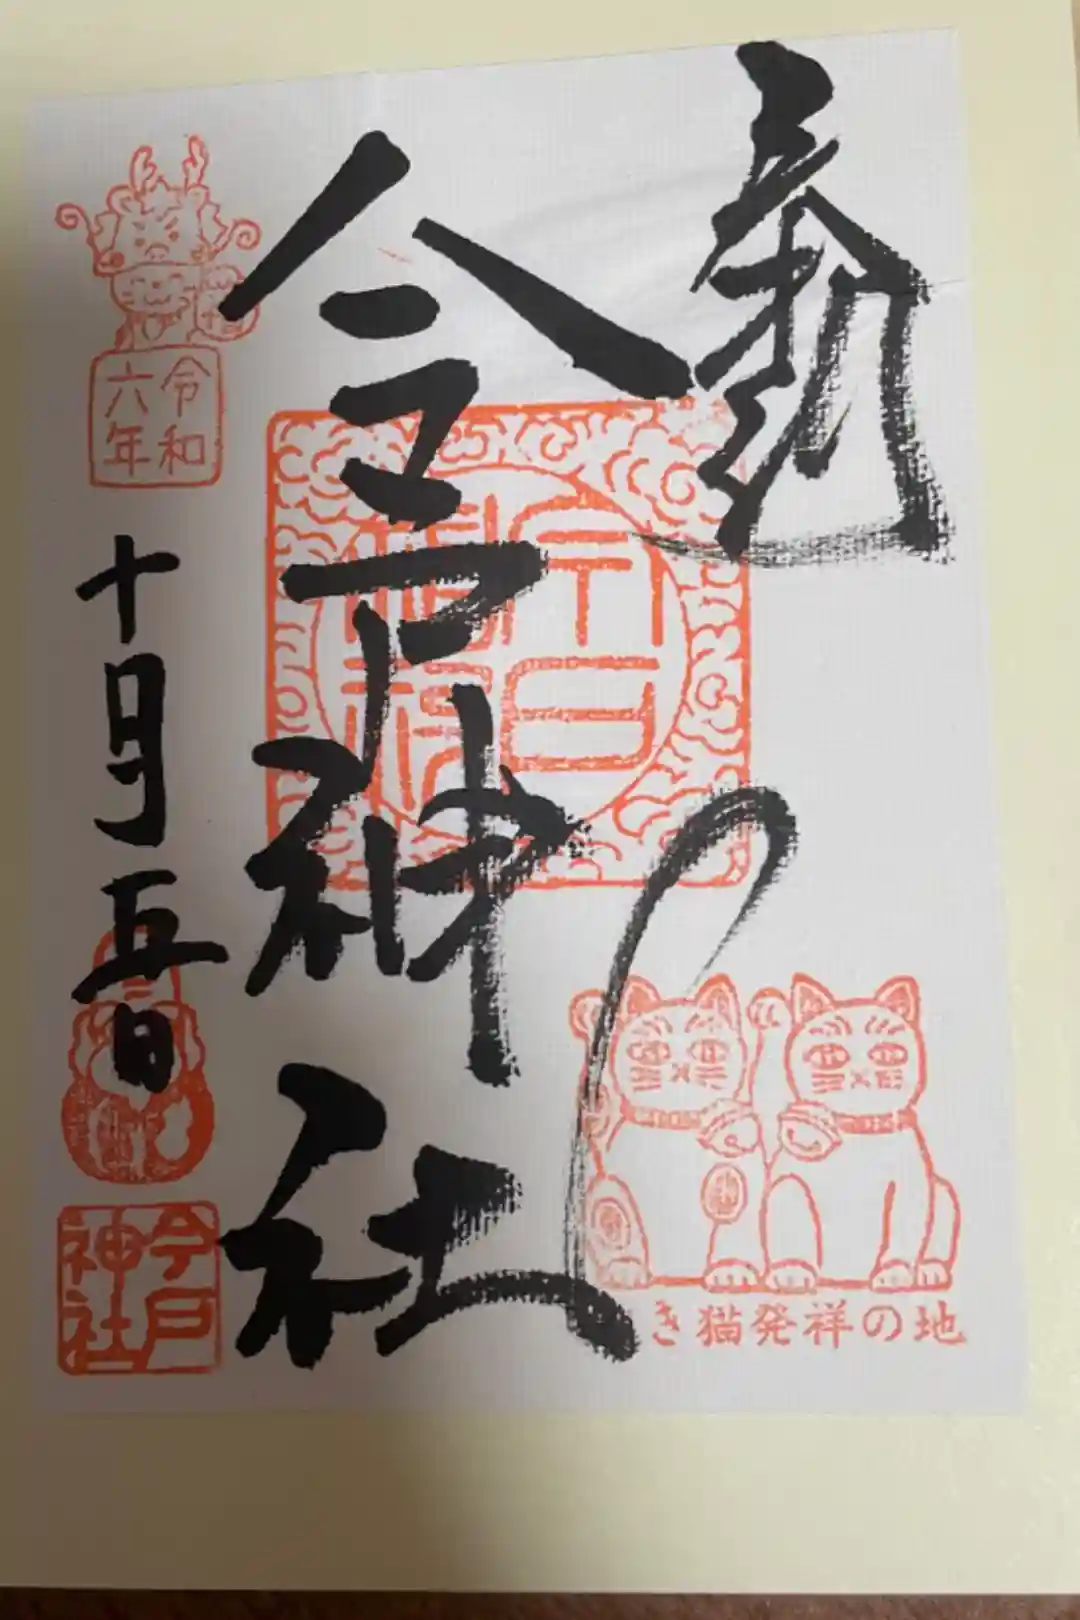 奉拝
今戸神社
令和
六年
十月五日
今戸
神社
き猫発祥の地
福